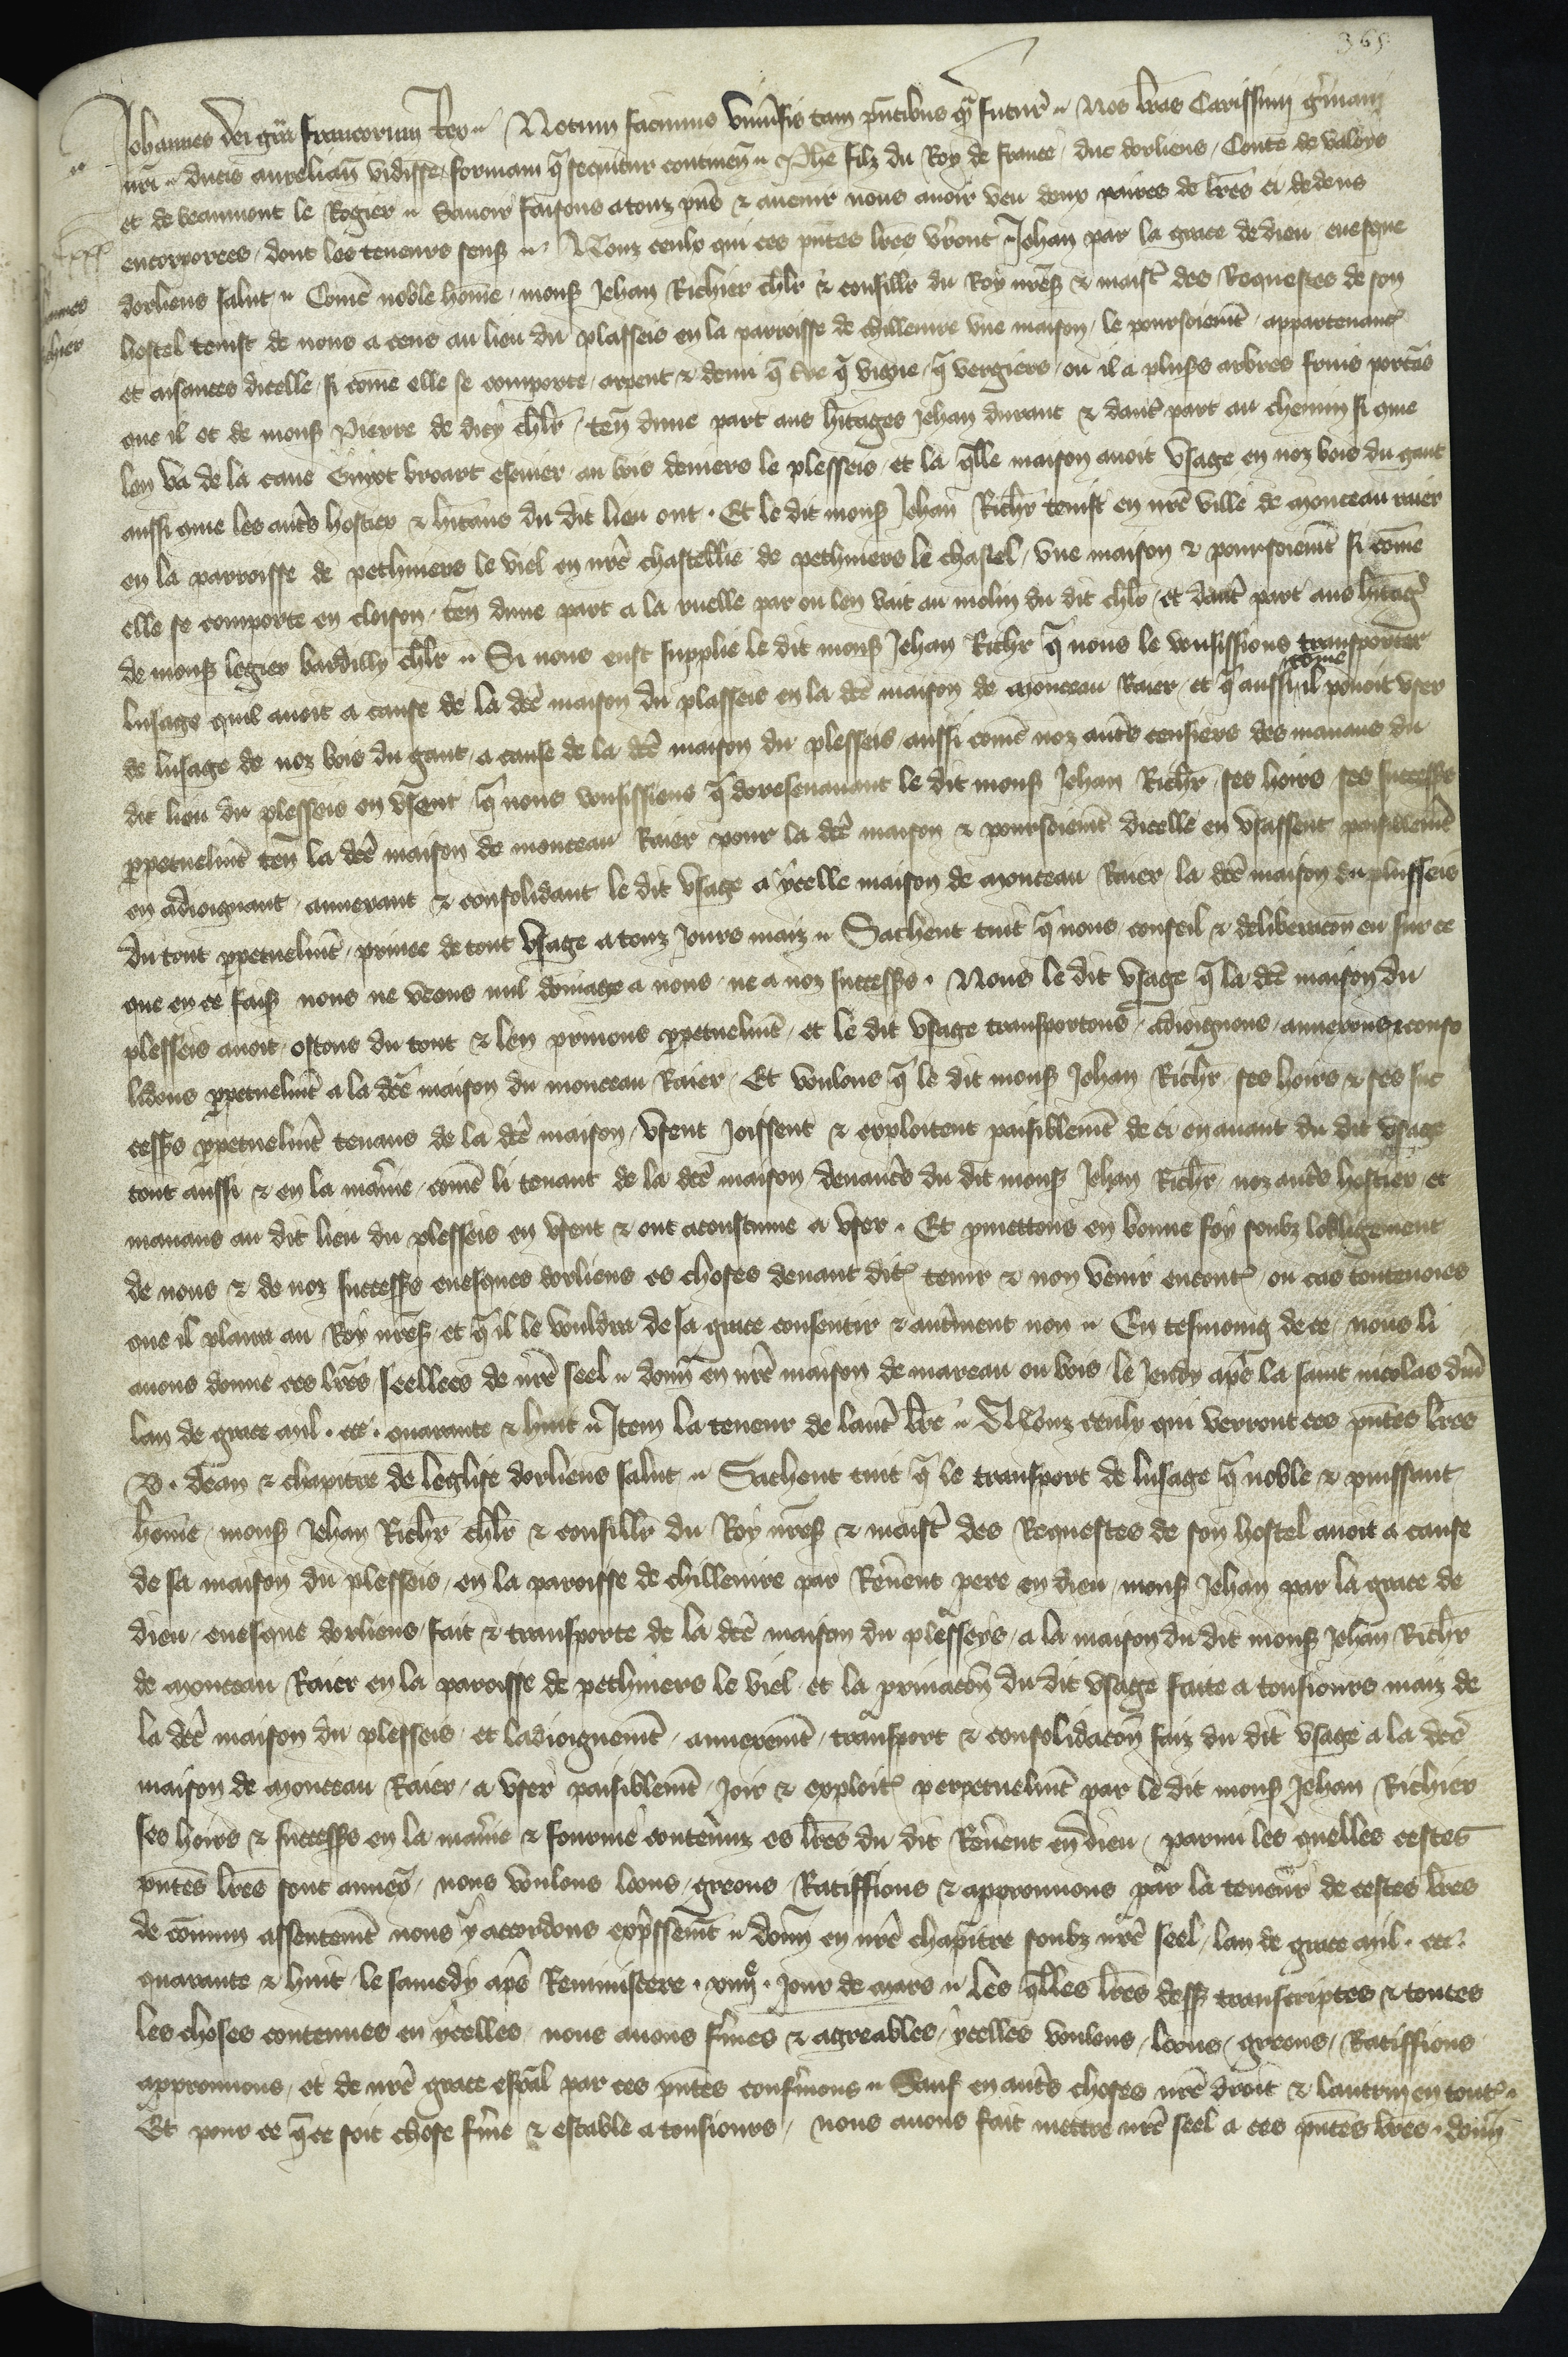 365
Johannes dei gra francorum Rex. Notum facimus universis tam pñtibus q̃ futur̃. Nos lr̃as Carissimi gr̃mani
nr̃i ducis aurelian̄ vidisse formam q̃ sequitur continen̄. Phẽ filz du Roy de france, duc dorliens, Conte de valoys
et de beaumont le Rogier. Savoir faisons a touz pñs & avenir nous avoir veu deux paires de lr̃es ci dedens
encorporees, dont les teneurs sens. A Touz ceulx qui ces pñtes lr̃es vr̃ont Jehan par la grace de dieu evesque
dorliens salut. Com̃e noble hom̃e, mons̃ Jehan Richier chlr̃ & conseillr̃ du Roy nr̃es̃ & maistr̃ des Requestes de son
hostel tenist de nous a cens au lieu du plasseis en la parroisse de chilleurre une maison, le pourseiem̃t, appartenanc̃
et aisances dicelle, si com̃e elle se comporte, arpent & demi q̃ tr̃e q̃ vigne, q̃ vergiers, ou il a plus̃s arbres fruis portãs
que il et de mons̃ Pierre de dicy chlr̃, ten̄ dune part aus hr̃itages Jehan durant & dautr̃ part au chemin si que
len va de la cave Guiot broart escuier, au bois devers le plesseis, et la q̃lle maison avoit usage en noz bois du gaut
aussi que les autr̃s hostier & hitans du dit lieu ont. Et le dit mons̃ Jehan Richr̃ tenist en nr̃e ville de monceau raier
en la parroisse de pethiviers le viel en nr̃e chastellie de pethiviers le chastel, une maison & pourseiem̃t si com̃e
elle se comporte en cloison, ten̄ dune part a la ruelle par ou len vait au molin du dit chlr̃, et dautr̃ part aus hr̃itag̃
de mons̃ legier bardilly chlr̃. Si nous eust supplie le dit mons̃ Jehan Richr̃ q̃ nous le vousissions transporter
lusage quil avoit a cause de la dc̃e maison du plasseis en la dc̃e maison de monceau Raier, et q̃ aussi com̃e il povoit user
de lusage de noz bois du gaut, a cause de la dc̃e maison du plesseis, aussi com̃e noz autr̃s censiers des manans du
dit lieu du plesseis en usent, q̃ nous vousissiens q̃ doresenavant le dit mons̃ Jehan Richr̃, ses hoirs, ses success̃s
p̱petuelm̃t ten̄ la dc̃e maison de monceau Raier pour la dc̃e maison & pourseiem̃t dicelle en usassent paisiblem̃t
en adioignant, annexant & consolidant le dit usage a ycelle maison de monceau Raier, la dc̃e maison du plusseis
du tout p̱petuelm̃t, privee de tout usage a touz Jours maiz. Sachent tuit q̃ nous, conseil & deliberacõn eu sur ce
que en ce fais̃ nous ne veons nul domage a nous, ne a noz success̃s. Nous le dit usage q̃ la dc̃e maison du
plesseis avoit, ostons du tout & len privons p̱petuelm̃t, et le dit usage transportons, adioignons, annexons & conso
lidons p̱petuelm̃t a la dc̃e maison du monceau Raier. Et voulons q̃ le dit mons̃ Jehan Richr̃, ses hoirs & ses suc
cess̃s p̱petuelm̃t tenans de la dc̃e maison, usent Joissent & exploitent paisiblem̃t de ci en avant du dit usage
tout aussi & en la mañie, com̃e li tenant de la dc̃e maison, devantr̃s du dit mons̃ Jehan Richr̃, noz autr̃s hostier et
manans au dit lieu du plesseis en usent & ont acoustume a user. Et p̱mettons en bonne foy soubz lobligement
de nous & de noz success̃s evesques dorliens es choses devant dit̃ tenir & non venir encontr̃, ou cas toutevoies
que il plaira au Roy nr̃es̃, et q̃ il le vouldra de sa grace consentir & autr̃ment non. En tesmoing de ce, nous li
avons donne ces lr̃es, seellees de nr̃e seel. Donn̄ en nr̃e maison de mareau ou bois, le Jeudy ap̃s la saint nicolas diver
lan de grace mil. ccc. quarante & huit. Item la teneur de lautr̃ lr̃e. A Touz ceulx qui verront ces pñtes lr̃es
D. dean & chapitre de leglise dorliens salut. Sachent tuit q̃ le transport de lusage q̃ noble & puissant
hom̃e, mons̃ Jehan Richr̃ chlr̃ & conseillr̃ du Roy nr̃es̃ & maistr̃ des Requestes de son hostel avoit a cause
de sa maison du plesseis, en la paroisse de chilleurre par Rev̄ent pere en dieu, mons̃ Jehan par la grace de
dieu, evesque dorliens, fait & transporte de la dc̃e maison du plesseys, a la maison du dit mons̃ Jehan Richr̃
de monceau Raier en la paroisse de pethiviers le viel, et la privacõn du dit usage faite a tousiours maiz de
la dc̃e maison du plesseis, et ladioignem̃t, annexem̃t, transport & consolidacõn faiz du dit usage a la dc̃e
maison de monceau Raier, a user paisiblem̃t, Joir & exploit̃ perpetuelm̃t par le dit mons̃ Jehan Richier
ses hoirs & success̃s en la mañie & fourme contenuz es lr̃es du dit Rev̄ent en dieu, parmi les quelles cestes
pñtes lr̃es sont annex̃, nous voulons loons, greons, Ratiffions & approuvons par la teneur de cestes lr̃es
de com̃un assentem̃t nous y accordons exp̃ssem̃t. Donn̄ en nr̃e chapitre soubz nr̃e seel, lan de grace mil. ccc.
quarante & huit, le samedy ap̃s Reminiscere. xiiije. Jour de mars. Les q̃lles lr̃es dess̃ transcriptes & toutes
les choses contenues en ycelles, nous avons f̃mes & agreables, ycelles voulons, loons, greons, Ratiffions
approuvons, et de nr̃e grace esp̃al par ces pñtes conf̃mons. Sauf en autr̃s choses nr̃e droit & lautruy en tout̃.
Et pour ce q̃ ce soit chose f̃me & estable a tousiours, nous avons fait mettre nr̃e seel a ces pñtes lr̃es. Donn̄